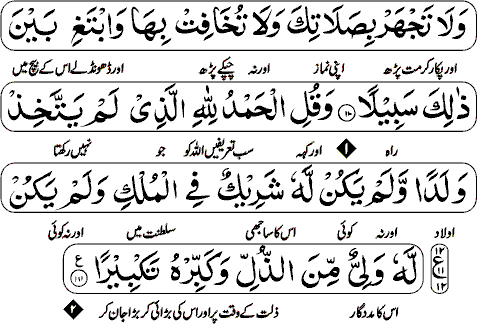 وَلَا تَجْهَرْ بِصَلَاتِكَ وَلَا تُخَافِتْ بِهَا وَابْتَغِ بَيْنَ
اور پکار کر مت پڑھ اپنی نماز اور نہ چپکے پڑھ اور ڈھونڈ لے اس کے بیچ میں
ذٰلِكَ سَبِيْلًا ۝۱۱۰ وَقُلِ الْحَمْدُ لِلّٰهِ الَّذِىْ لَمْ يَتَّخِذْ
راہ ۱ اور کہہ سب تعریفیں اللہ کو جو نہیں رکھتا
وَلَدًا وَّلَمْ يَكُنْ لَّهٗ شَرِيْكٌ فِى الْمُلْكِ وَلَمْ يَكُنْ
اولاد اور نہ کوئی اس کا ساجھی سلطنت میں اور نہ کوئی
لَّهٗ وَلِىٌّ مِّنَ الذُّلِّ وَكَبِّرْهُ تَكْبِيْرًا ۝۱۱۱ ع
۱۲ ع ۱۱ ۱۲
اس کا مددگار ذلت کے وقت پر اور اس کی بڑائی کر بڑا جان کر ۲